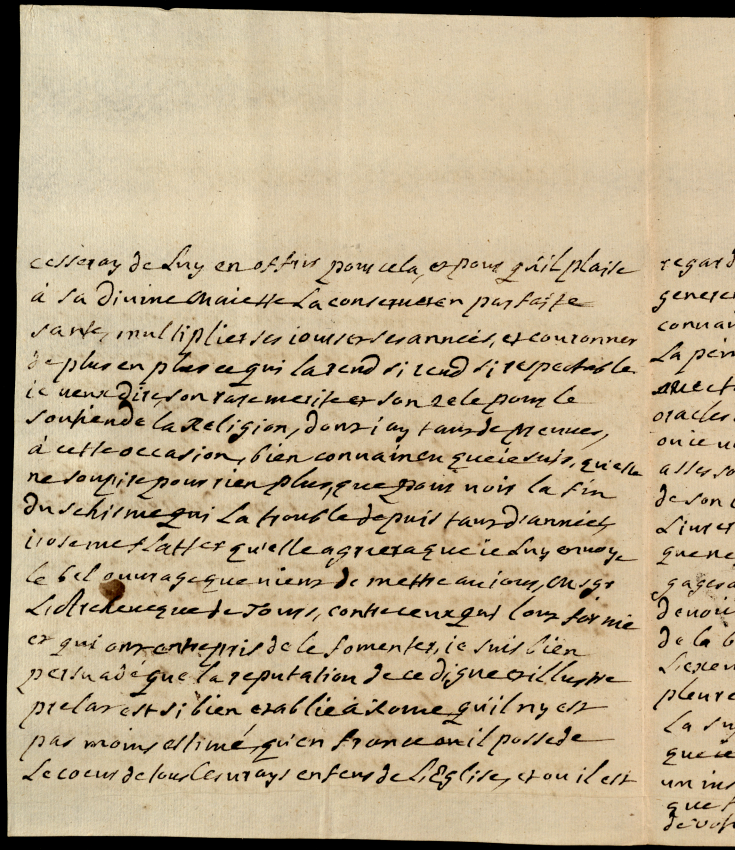 cesseray de Luy en offrir pour cela, et pour qu'il plaise
à sa divine Maiesté La conseruer en parfaite
santé, multiplier ses iours et ses années, et couronner
de plus en plus ce qui la rend si rend si respectable
ie ueux dire, son rare merite et son zele pour le
soutien de la Religion, dont i'ay tant de preuues,
à cette occasion, bien conuaincu que ie suis, qu'elle
ne soupire pour rien plus, que pour uoir la fin
du schisme qui La trouble depuis tant d'années
i'ose me flatter qu'elle agréera que ie Luy enuoye
le bel ouurage que uient de mettre au iour, Msgr
L'Archeueque de Tours, contre ceux qui l'ont formé
et qui ont entrepris de le fomenter, ie suis bien
persuadé que la reputation de ce digne et illustre
prelat est si bien établie à Rome qu'il n'y est
pas moins estimé, qu'en france ou il possede
Le coeur de tous Les urays enfens de L'Eglise, et ou il est
regard
generer
connai
La pen
oracles
ou ie u
de son
que ne
gages
deuoir
de la b
pleure
La su
que ie
un ins
que
de vos